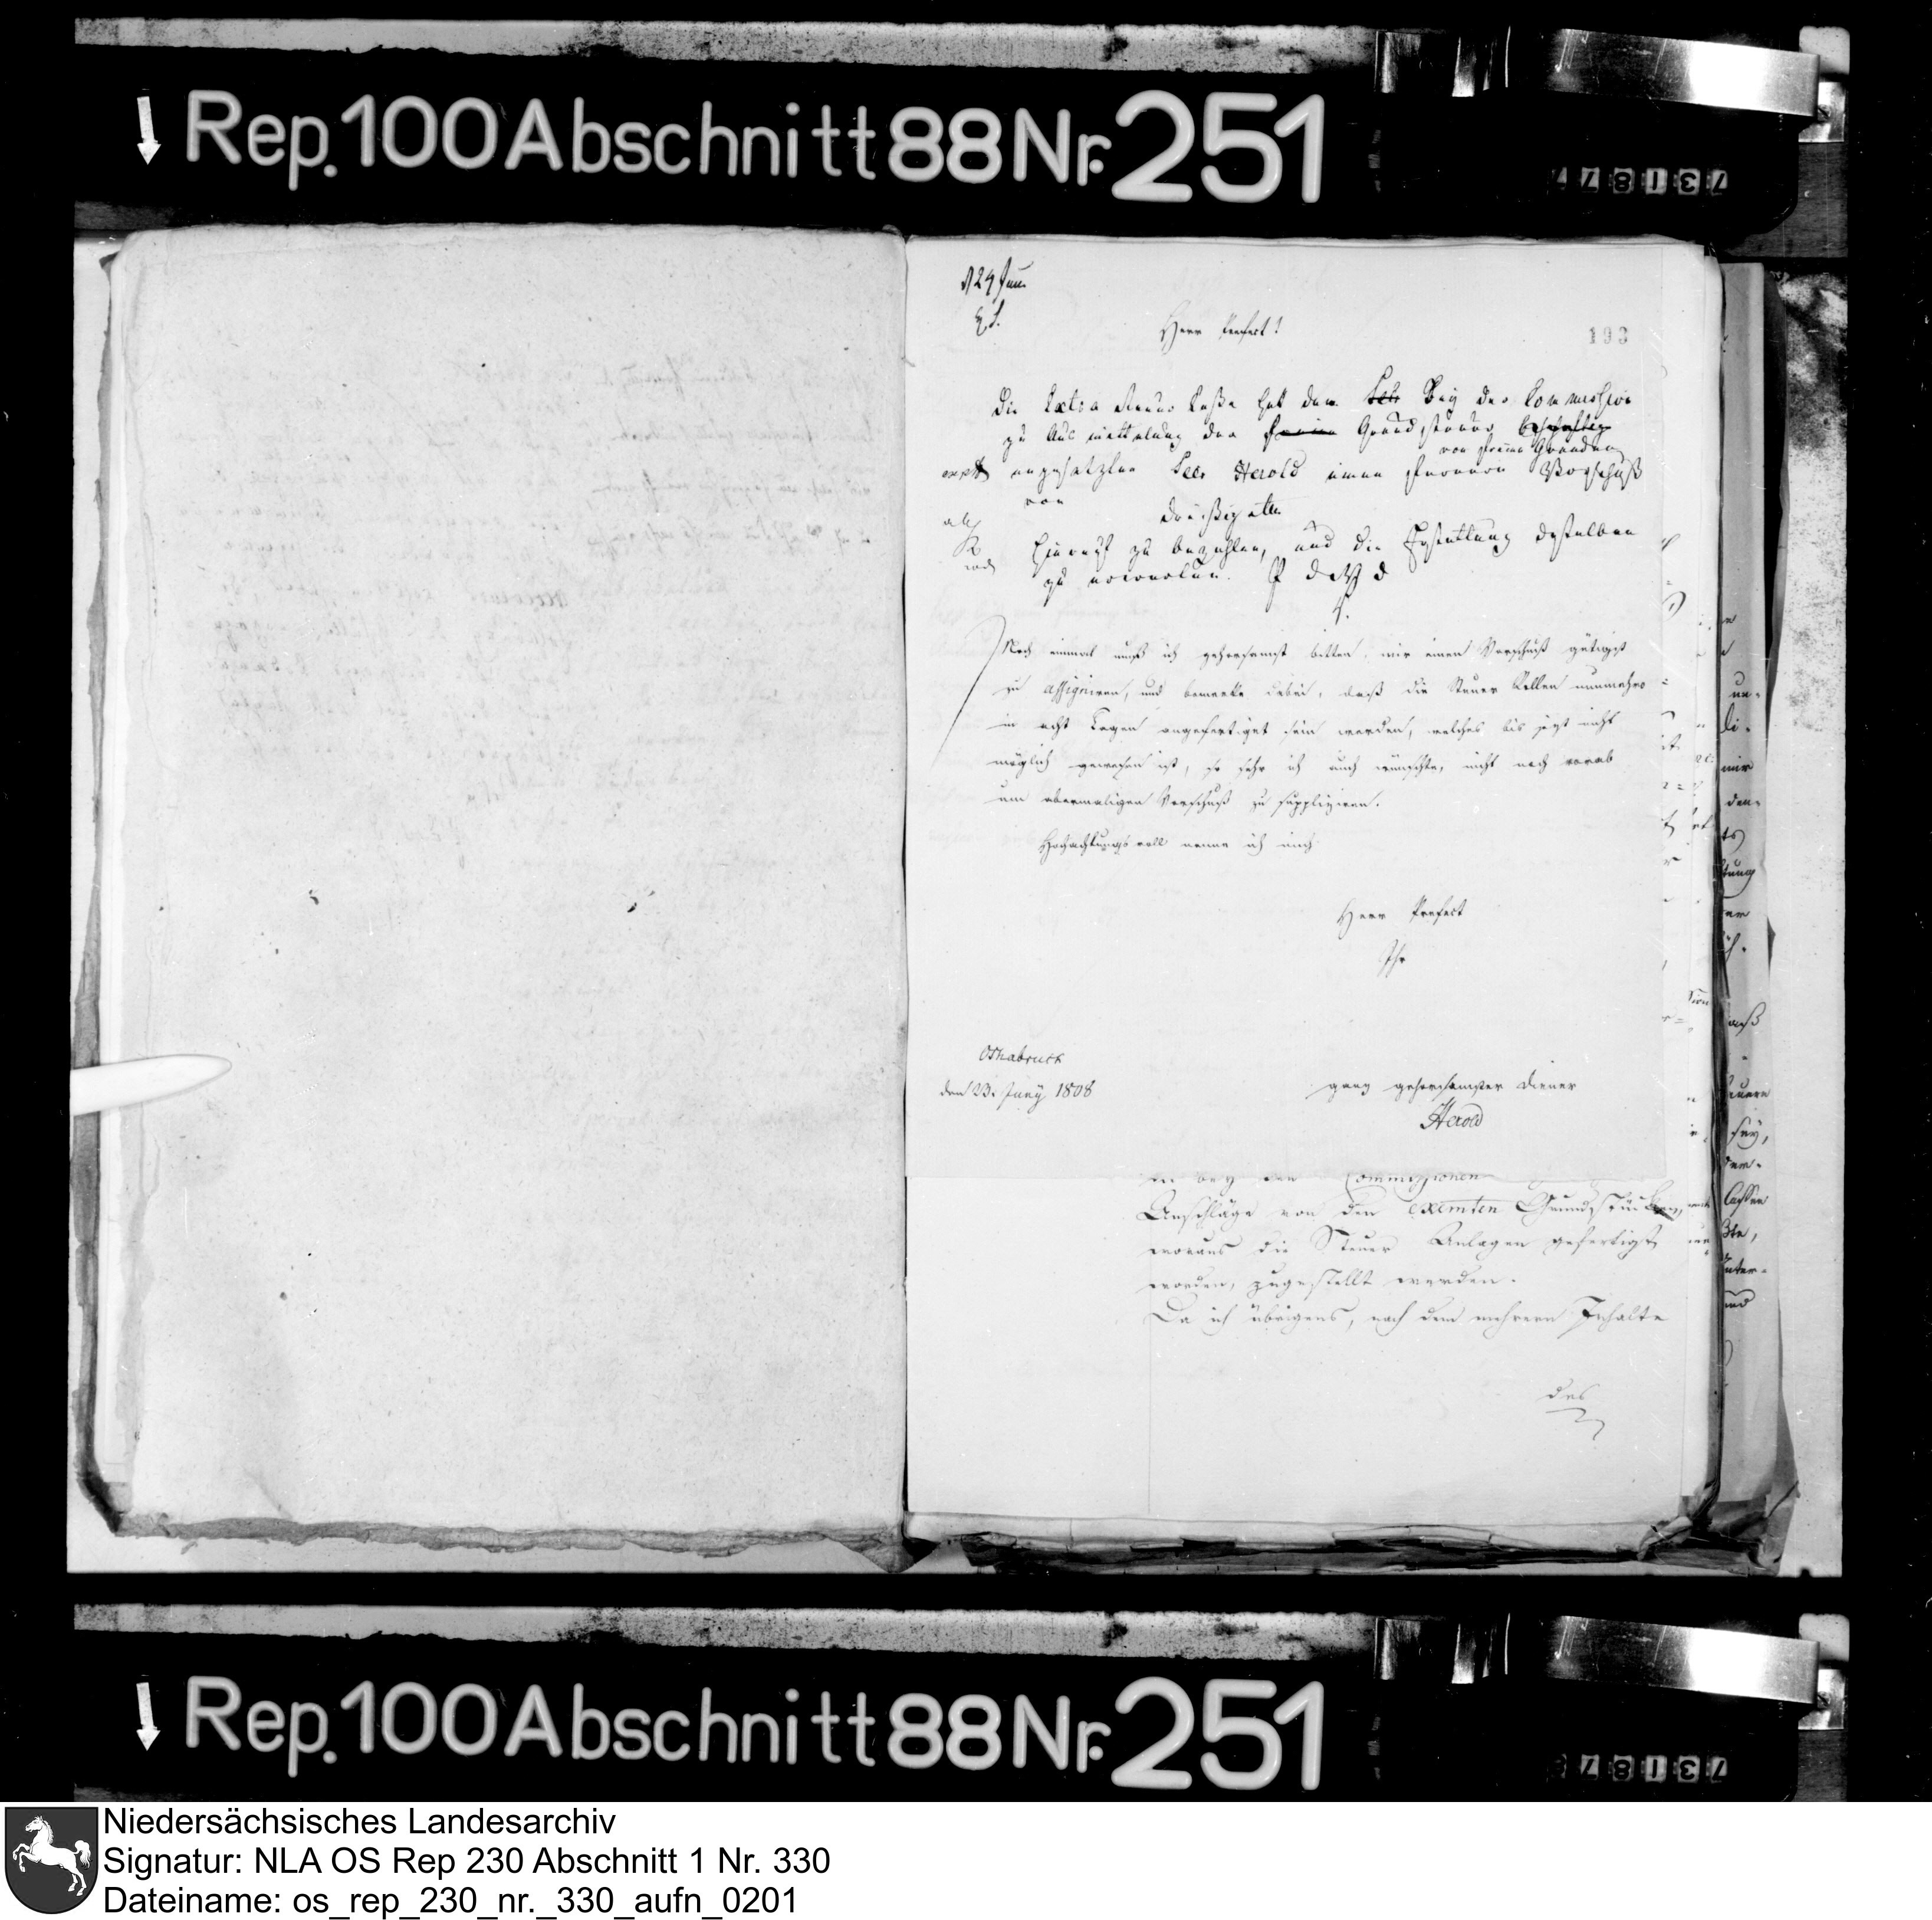 Rep. 100 Abschnitt 88 Nr. 251
731877
d 24 Jun.
Herr Präfect!
193
Die Extra Steuer Caße hat dem Secr bey der Commission
zu Ausmittelung der Grundsteuer beschäftig
von freien Gründen
angesetzten Secr Herold einen ferneren Vorschuß
von
dreißig
hierauf zu bezahlen, und die Erstattung desselben
zu erwarten.
Noch einmal muß ich gehorsamst bitten, mir einen Vorschuß gütigst
zu assigniren, und bemerke dabei, daß die Steuer Rollen nunmehro
in acht Tagen angefertiget sein werden, welches bis jezt nicht
möglich gewesen ist, so sehr ich auch wünschte, nicht noch vorab
um abermaligen Vorschuß zu suppliziren.
Hochachtungsvoll nenne ich mich
Herr Präfect
Ihr
Osnabruck
den 23. Juny 1808
ganz gehorsamster Diener
Herold
bey den Commissionen
Anschläge von den exemten Grundstücken,
woraus die Steuer Anlagen gefertigt
worden, zugestellt werden.
Da ich übrigens, nach dem mehrern Inhalte
des
Rep. 100 Abschnitt 88 Nr. 251
Niedersächsisches Landesarchiv
Signatur: NLA OS Rep 230 Abschnitt 1 Nr. 330
Dateiname: os_rep_230_nr._330_aufn_0201